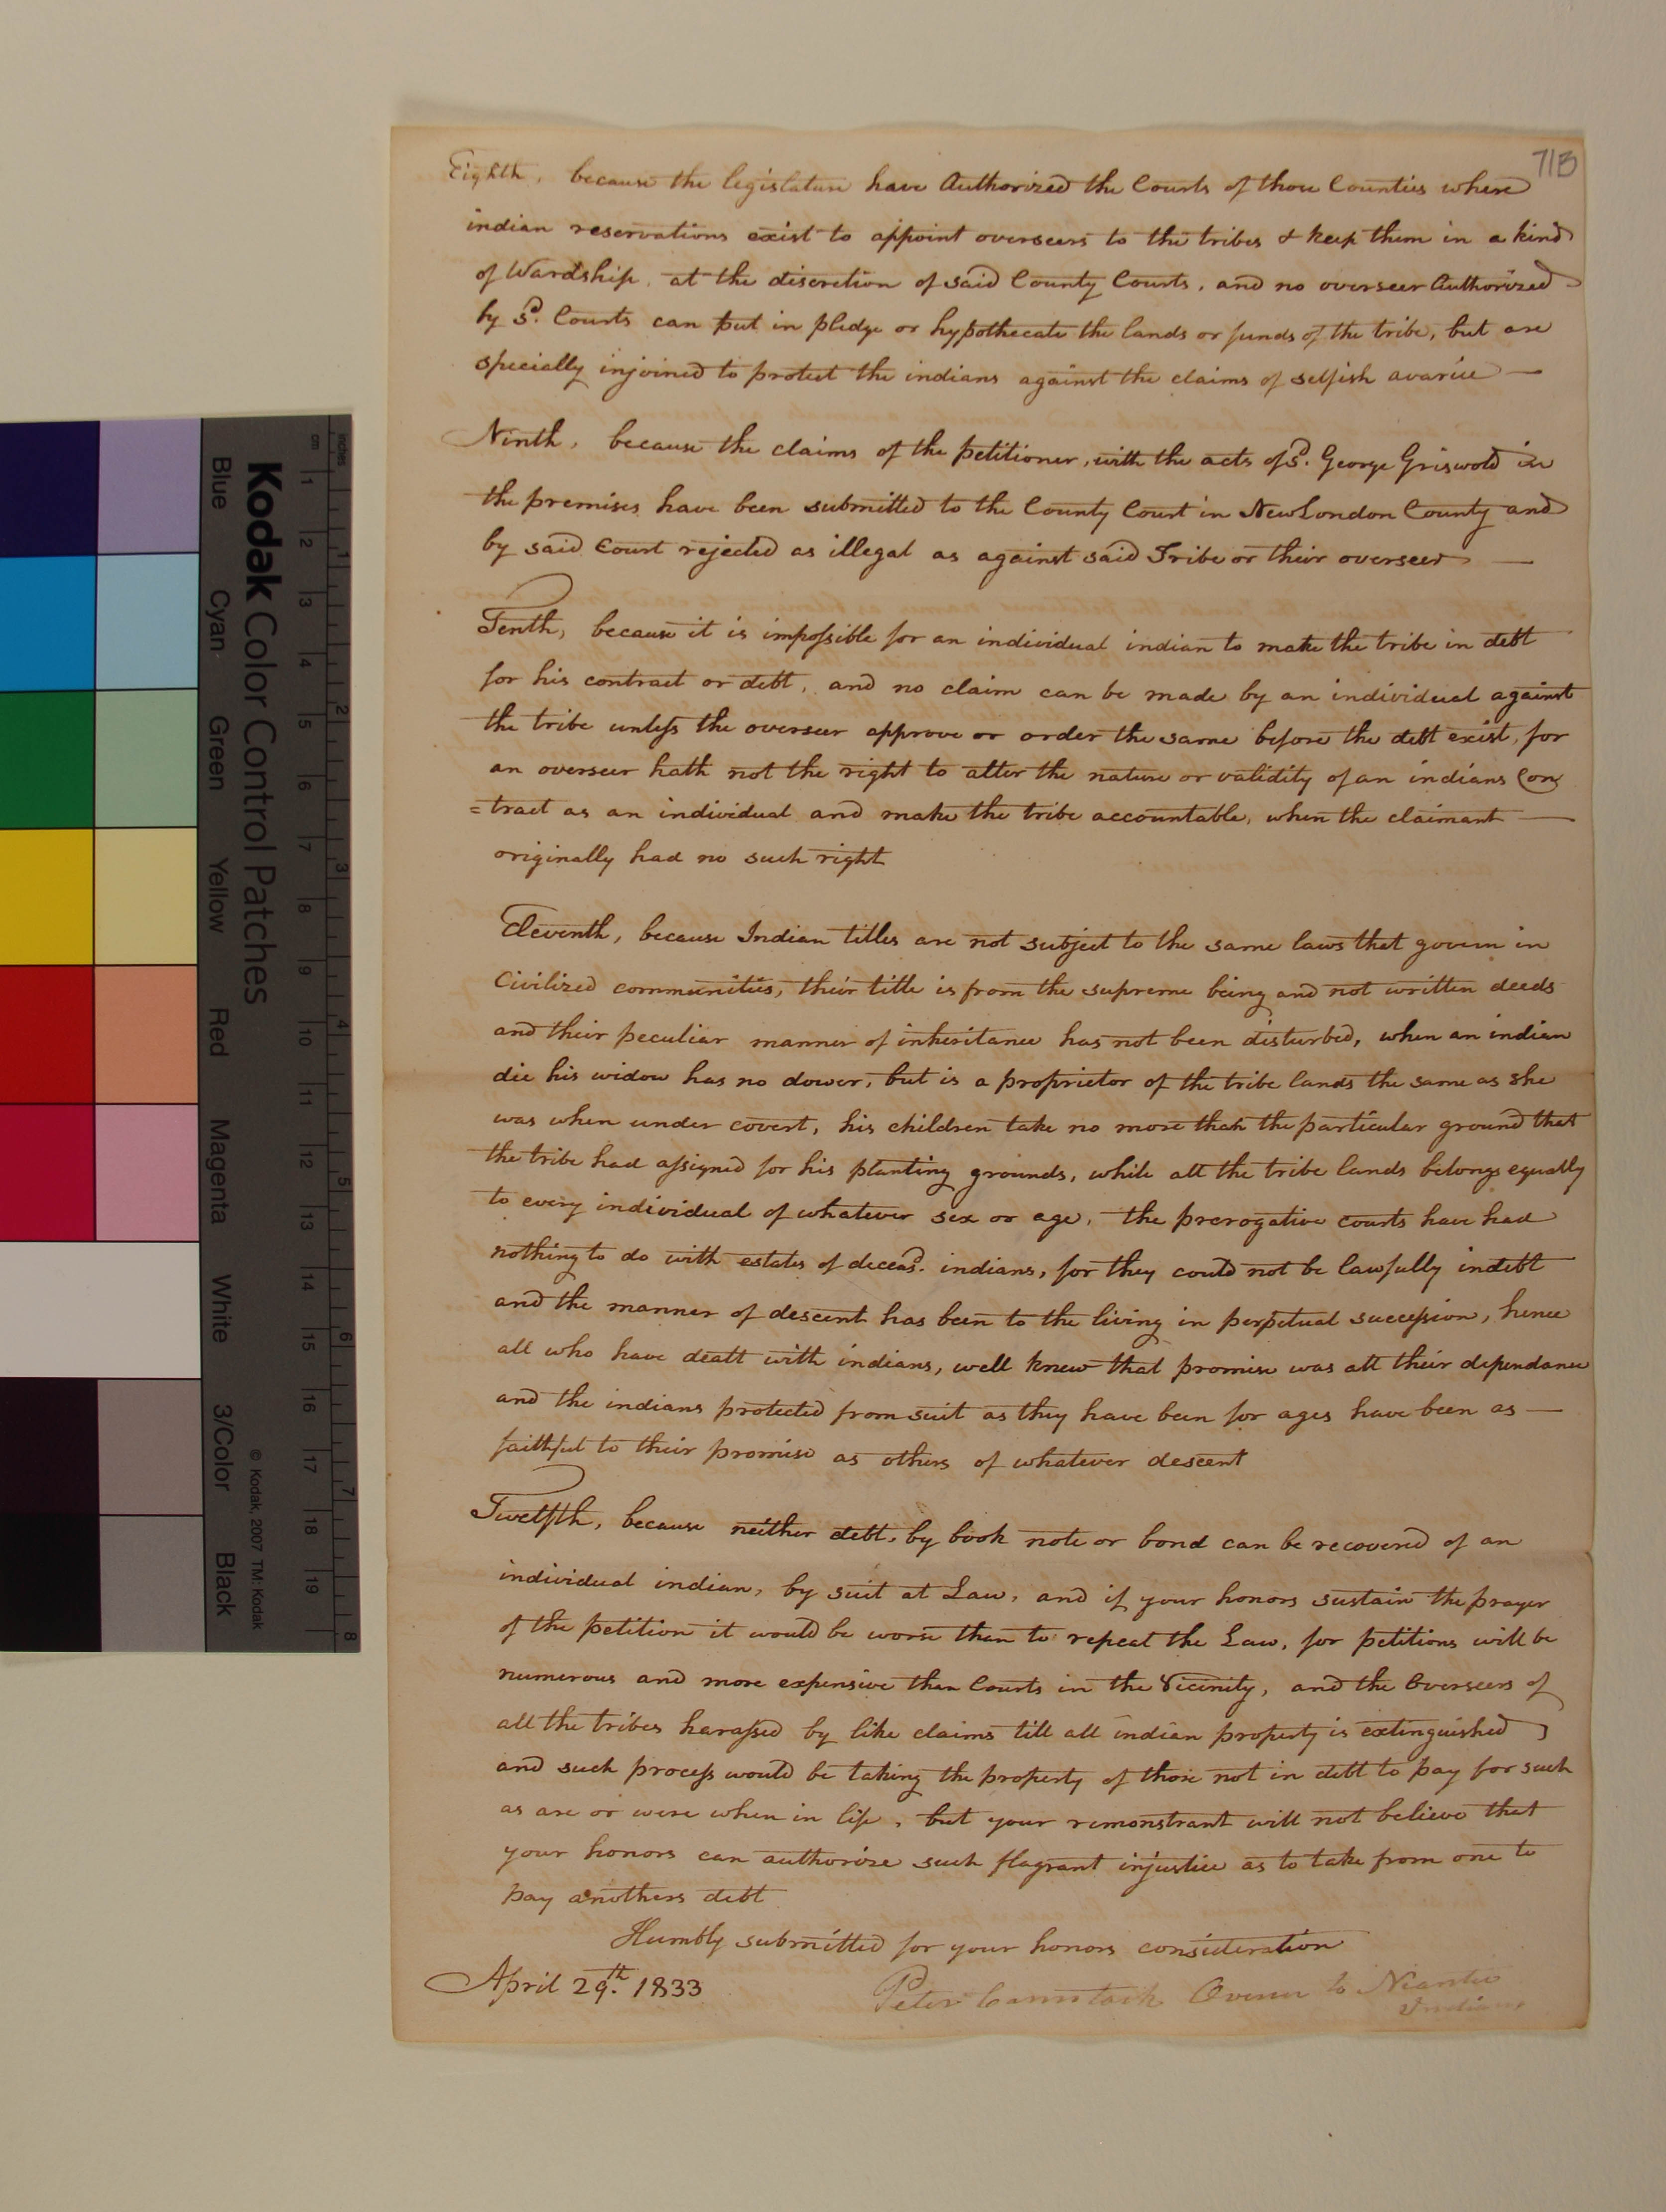 71B
Eighth, because the legislature have Authorized the Courts of those Counties where
indian reservations exist to appoint overseers to the tribes & keep them in a kind
of Wardship, at the discretion of said County Courts, and no overseer Authorized
by Sd. Courts can put in pledge or hypothecate the lands or funds of the tribe, but are
specially injoined to protect the indians against the claims of selfish avarice —
Ninth, because the claims of the petitioner, with the acts of Sd. George Griswold in
the premises have been submitted to the County Court in NewLondon County and
by said Court rejected as illegal as against said Tribe or their overseer —
Tenth, because it is impossible for an individual indian to make the tribe in debt
for his contract or debt, and no claim can be made by an individual against
the tribe unless the overseer approve or order the same before the debt exist, for
an overseer hath not the right to alter the nature or validity of an indians Con
=tract as an individual and make the tribe accountable, when the claimant —
originally had no such right
Eleventh, because Indian titles are not subject to the same laws that govern in
Civilized communities, their title is from the supreme being and not written deeds
and their peculiar manner of inheritance has not been disturbed, when an indian
die his widow has no dower, but is a proprietor of the tribe lands the same as she
was when under covert, his children take no more than the particular ground that
the tribe had assigned for his planting grounds, while all the tribe lands belongs equally
to every individual of whatever sex or age, the prerogative courts have had
nothing to do with estates of deceasd. indians, for they could not be lawfully indebt
and the manner of descent has been to the living in perpetual succession, hence
all who have dealt with indians, well knew that promise was all their dependance
and the indians protected from suit as they have been for ages have been as —
faithful to their promise as others of whatever descent
Twelfth, because neither debt, by book note or bond can be recovered of an
individual indian, by suit at Law, and if your honors sustain the prayer
of the petition it would be worse then to repeat the Law, for petitions will be
numerous and more expensive than Courts in the Vicinity, and the Overseers of
all the tribes harassed by like claims till all indian property is extinguished
and such process would be taking the property of those not in debt to pay for such
as are or were when in life, but your remonstrant will not believe that
your honors can authorize such flagrant injustice as to take from one to
pay anothers debt
Humbly submitted for your honors consideration
April 29.th 1833
Peter Comstock Overseer to Niantic
Indians
inches
cm
1 2 3 4 5 6 7 8 9 10 11 12 13 14 15 16 17 18 19
1 2 3 4 5 6 7 8
Kodak Color Control Patches
© Kodak, 2007 TM: Kodak
Blue Cyan Green Yellow Red Magenta White 3/Color Black